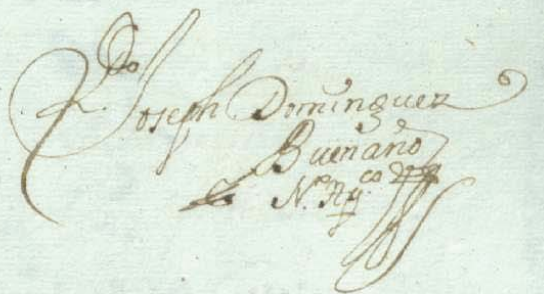 Do
Joseph Dominguez
Buenaño
N.